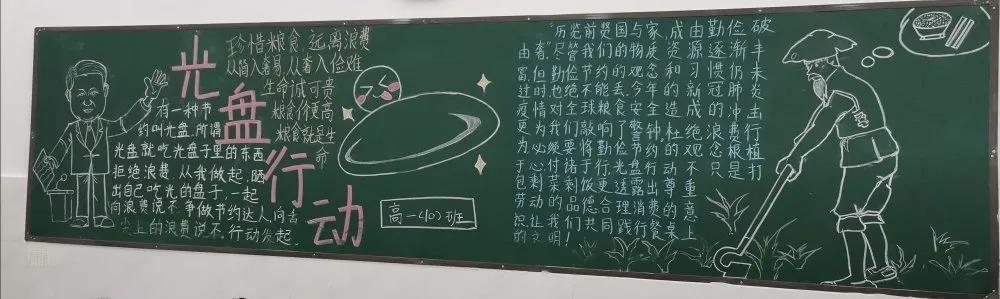 光盘行动
珍惜粮食,远离浪费
从俭入奢易,从奢入俭难
生命诚可贵
粮食价更高
粮食就是生命
有一种节
约叫光盘,所谓
光盘就吃光盘子里的东西
拒绝浪费,从我做起,晒
出自己吃光的盘子,一起
向浪费说不,争做节约达人,向舌
尖上的浪费说不,行动发起
高一(10)班
"历览前贤国与家,成由勤俭破
由奢"尽管我们的物资源逐渐丰
富,但勤俭节约的观念和习惯仍未
过时,也绝不能去。今年的新冠肺炎
疫情对全球粮食安全造成的冲击
更为我们敲响了警钟,杜绝浪费行
为,必须要将勤俭节约的观念植根
于心,付诸于行。光盘行动不只是打
包剩菜剩饭,更透露出尊重
劳动的品德,合理消费的意
识,让我们共同践行餐桌上
的文明!